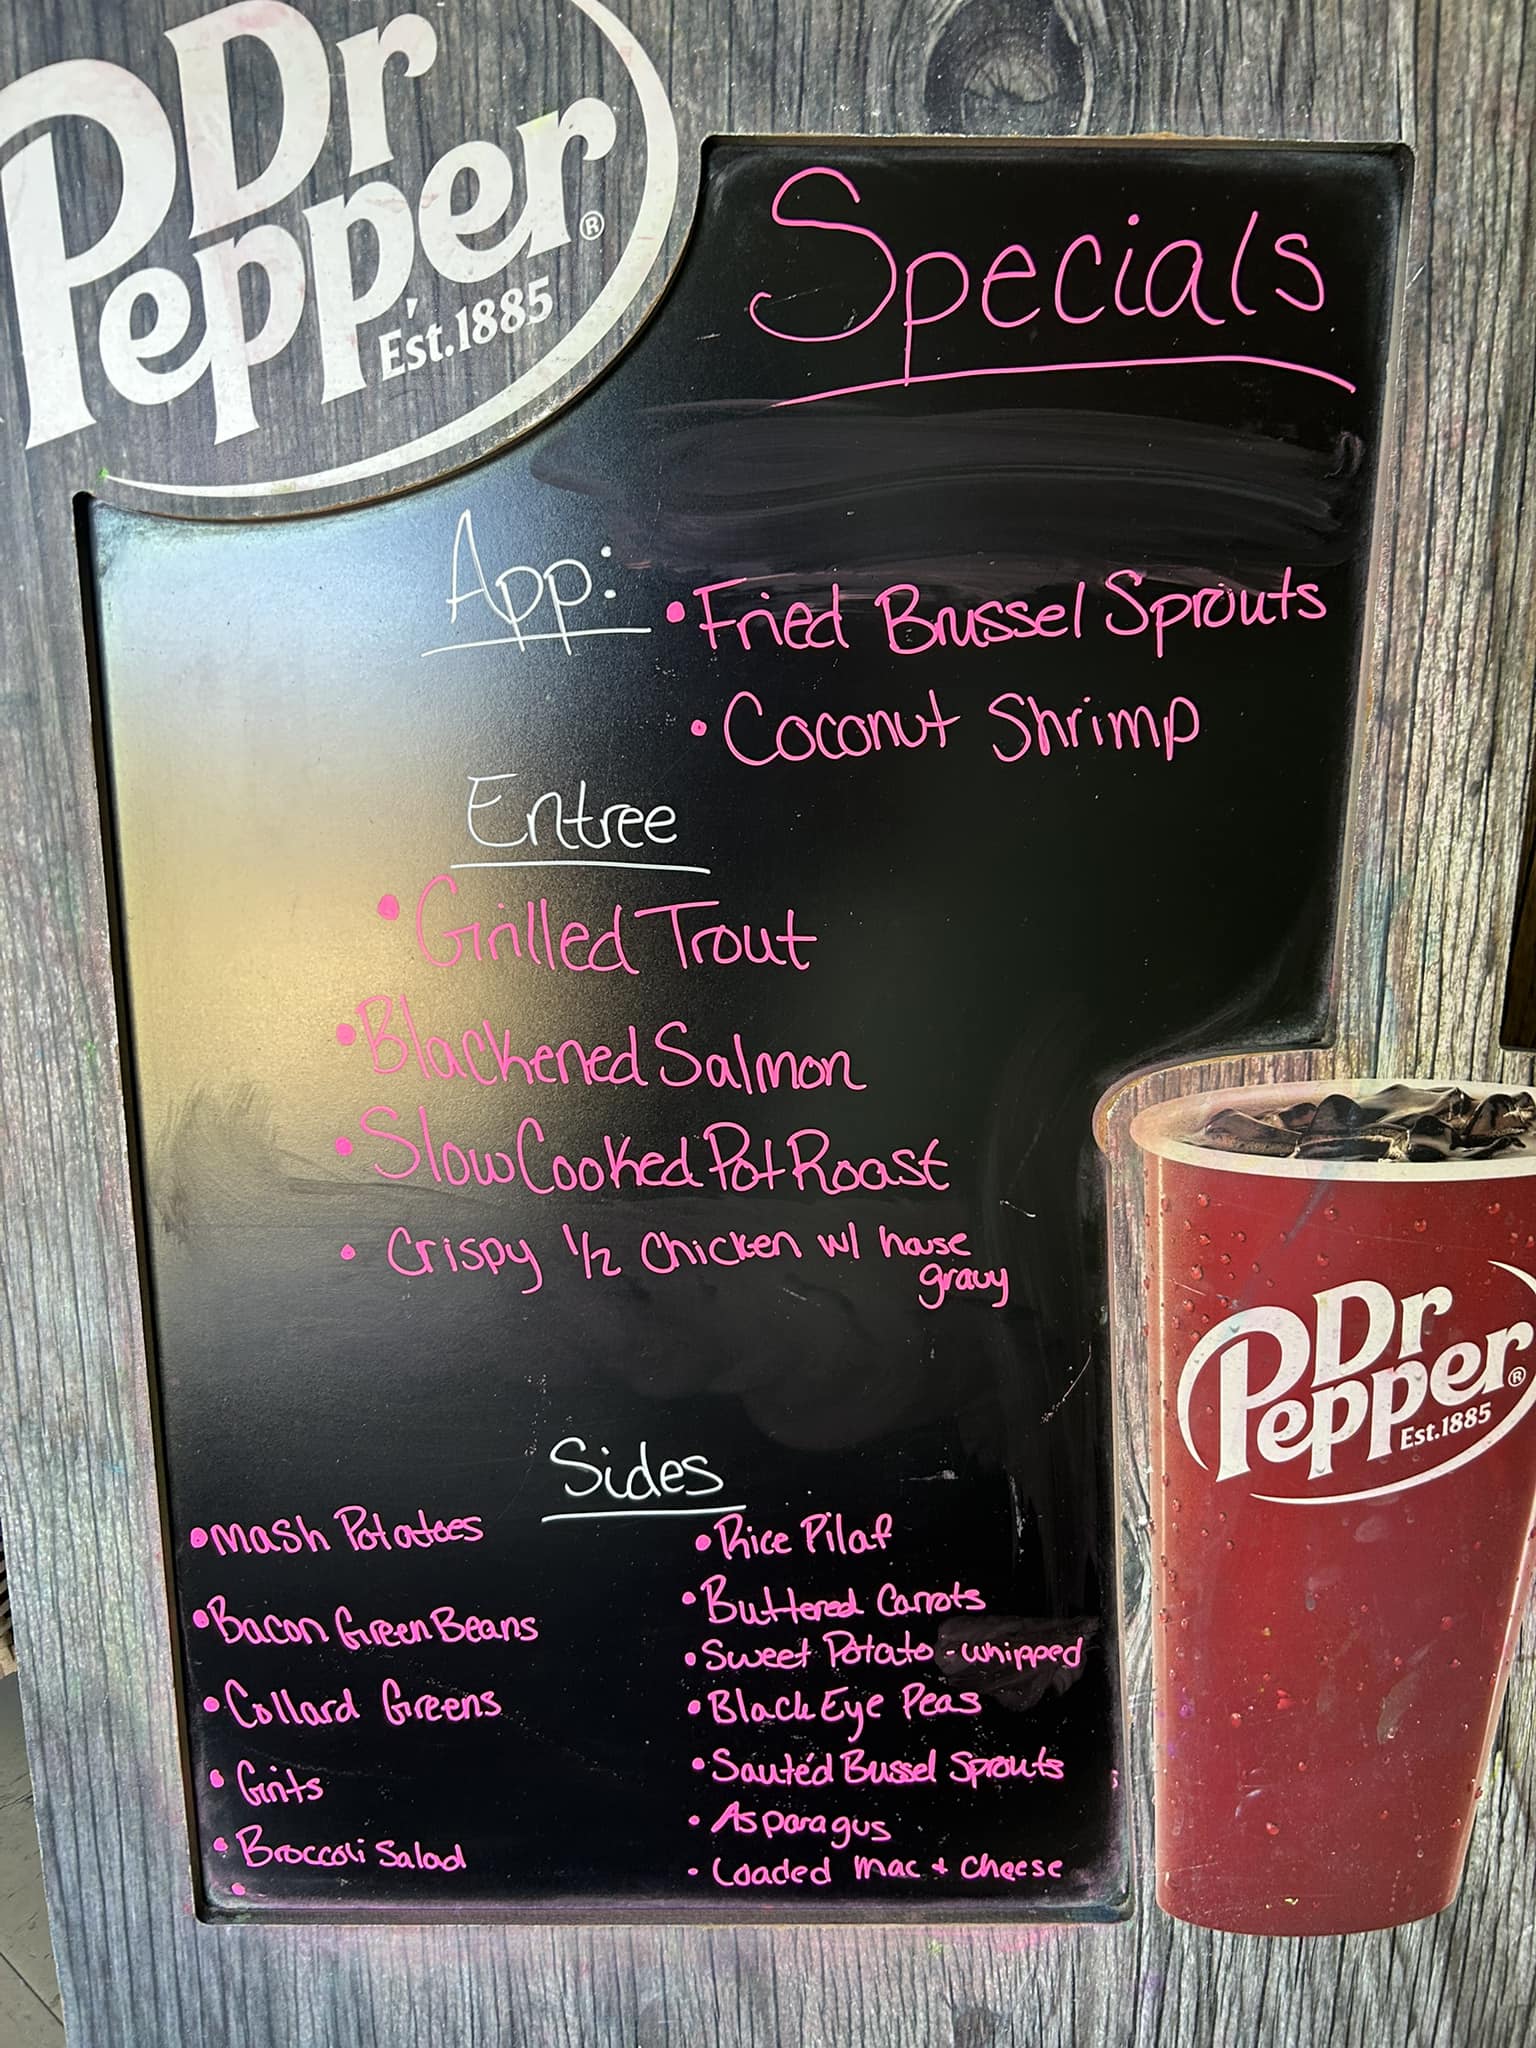 Dr
Pepper®
Est.1885
Specials
App:
• Fried Brussel Sprouts
• Coconut Shrimp
Entree
• Grilled Trout
• Blackened Salmon
• Slow Cooked Pot Roast
• Crispy 1/2 Chicken w/ house
gravy
Sides
• Mash Potatoes
• Bacon Green Beans
• Collard Greens
• Grits
• Broccoli Salad
•
• Rice Pilaf
• Buttered Carrots
• Sweet Potato - whipped
• Black Eye Peas
• Sautéd Bussel Sprouts
• Asparagus
• Loaded Mac + Cheese
Dr
Pepper®
Est.1885